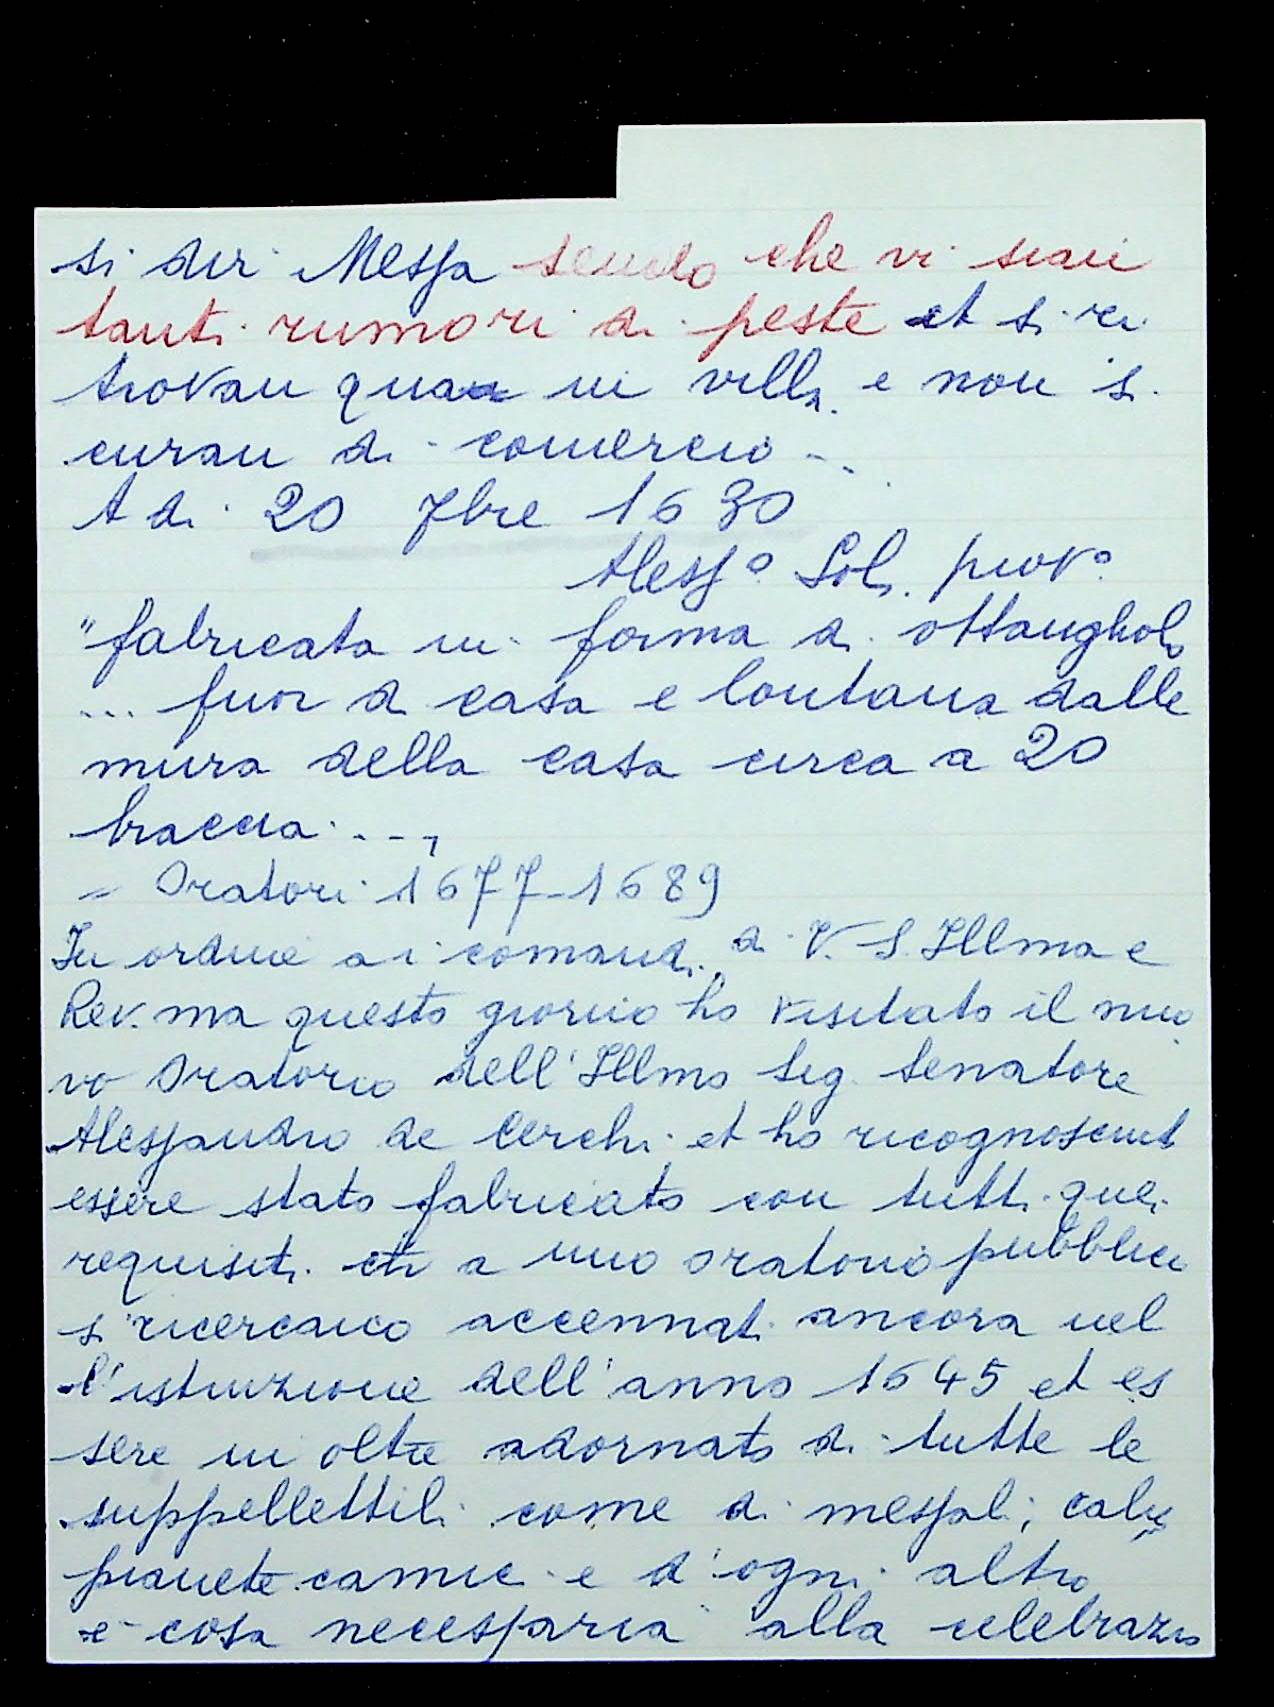 si dir Messa sendo che vi sian
tanti rumori di peste et si ri
trovan qua in villa e non si
curan di comercio ...
A di 20 7bre 1630
Aless° Soli prov°
"fabricata in forma di ottangholo
... fuor di casa e lontana dalle
mura della casa circa a 20
braccia ...,
= Oratori 1677-1689
In ordine a i comandi di V. S. Illma e
Rev.ma questo giorno ho visitato il nuo
vo Oratorio dell'Illmo Sig. Senatore
Alessandro de Cerchi et ho ricognosciut
essere stato fabricato con tutti quei
requisiti che a uno oratorio pubblico
si ricercano accennati ancora nel
l'istruzione dell'anno 1645 et es
sere in oltre adornato di tutte le
suppellettili come di messali, calici
pianete camici e d'ogni altro
e cosa necessaria alla celebrazio